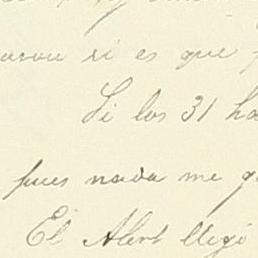 si es que
Si los 31 ha
pues nada me q
El Albert llegó